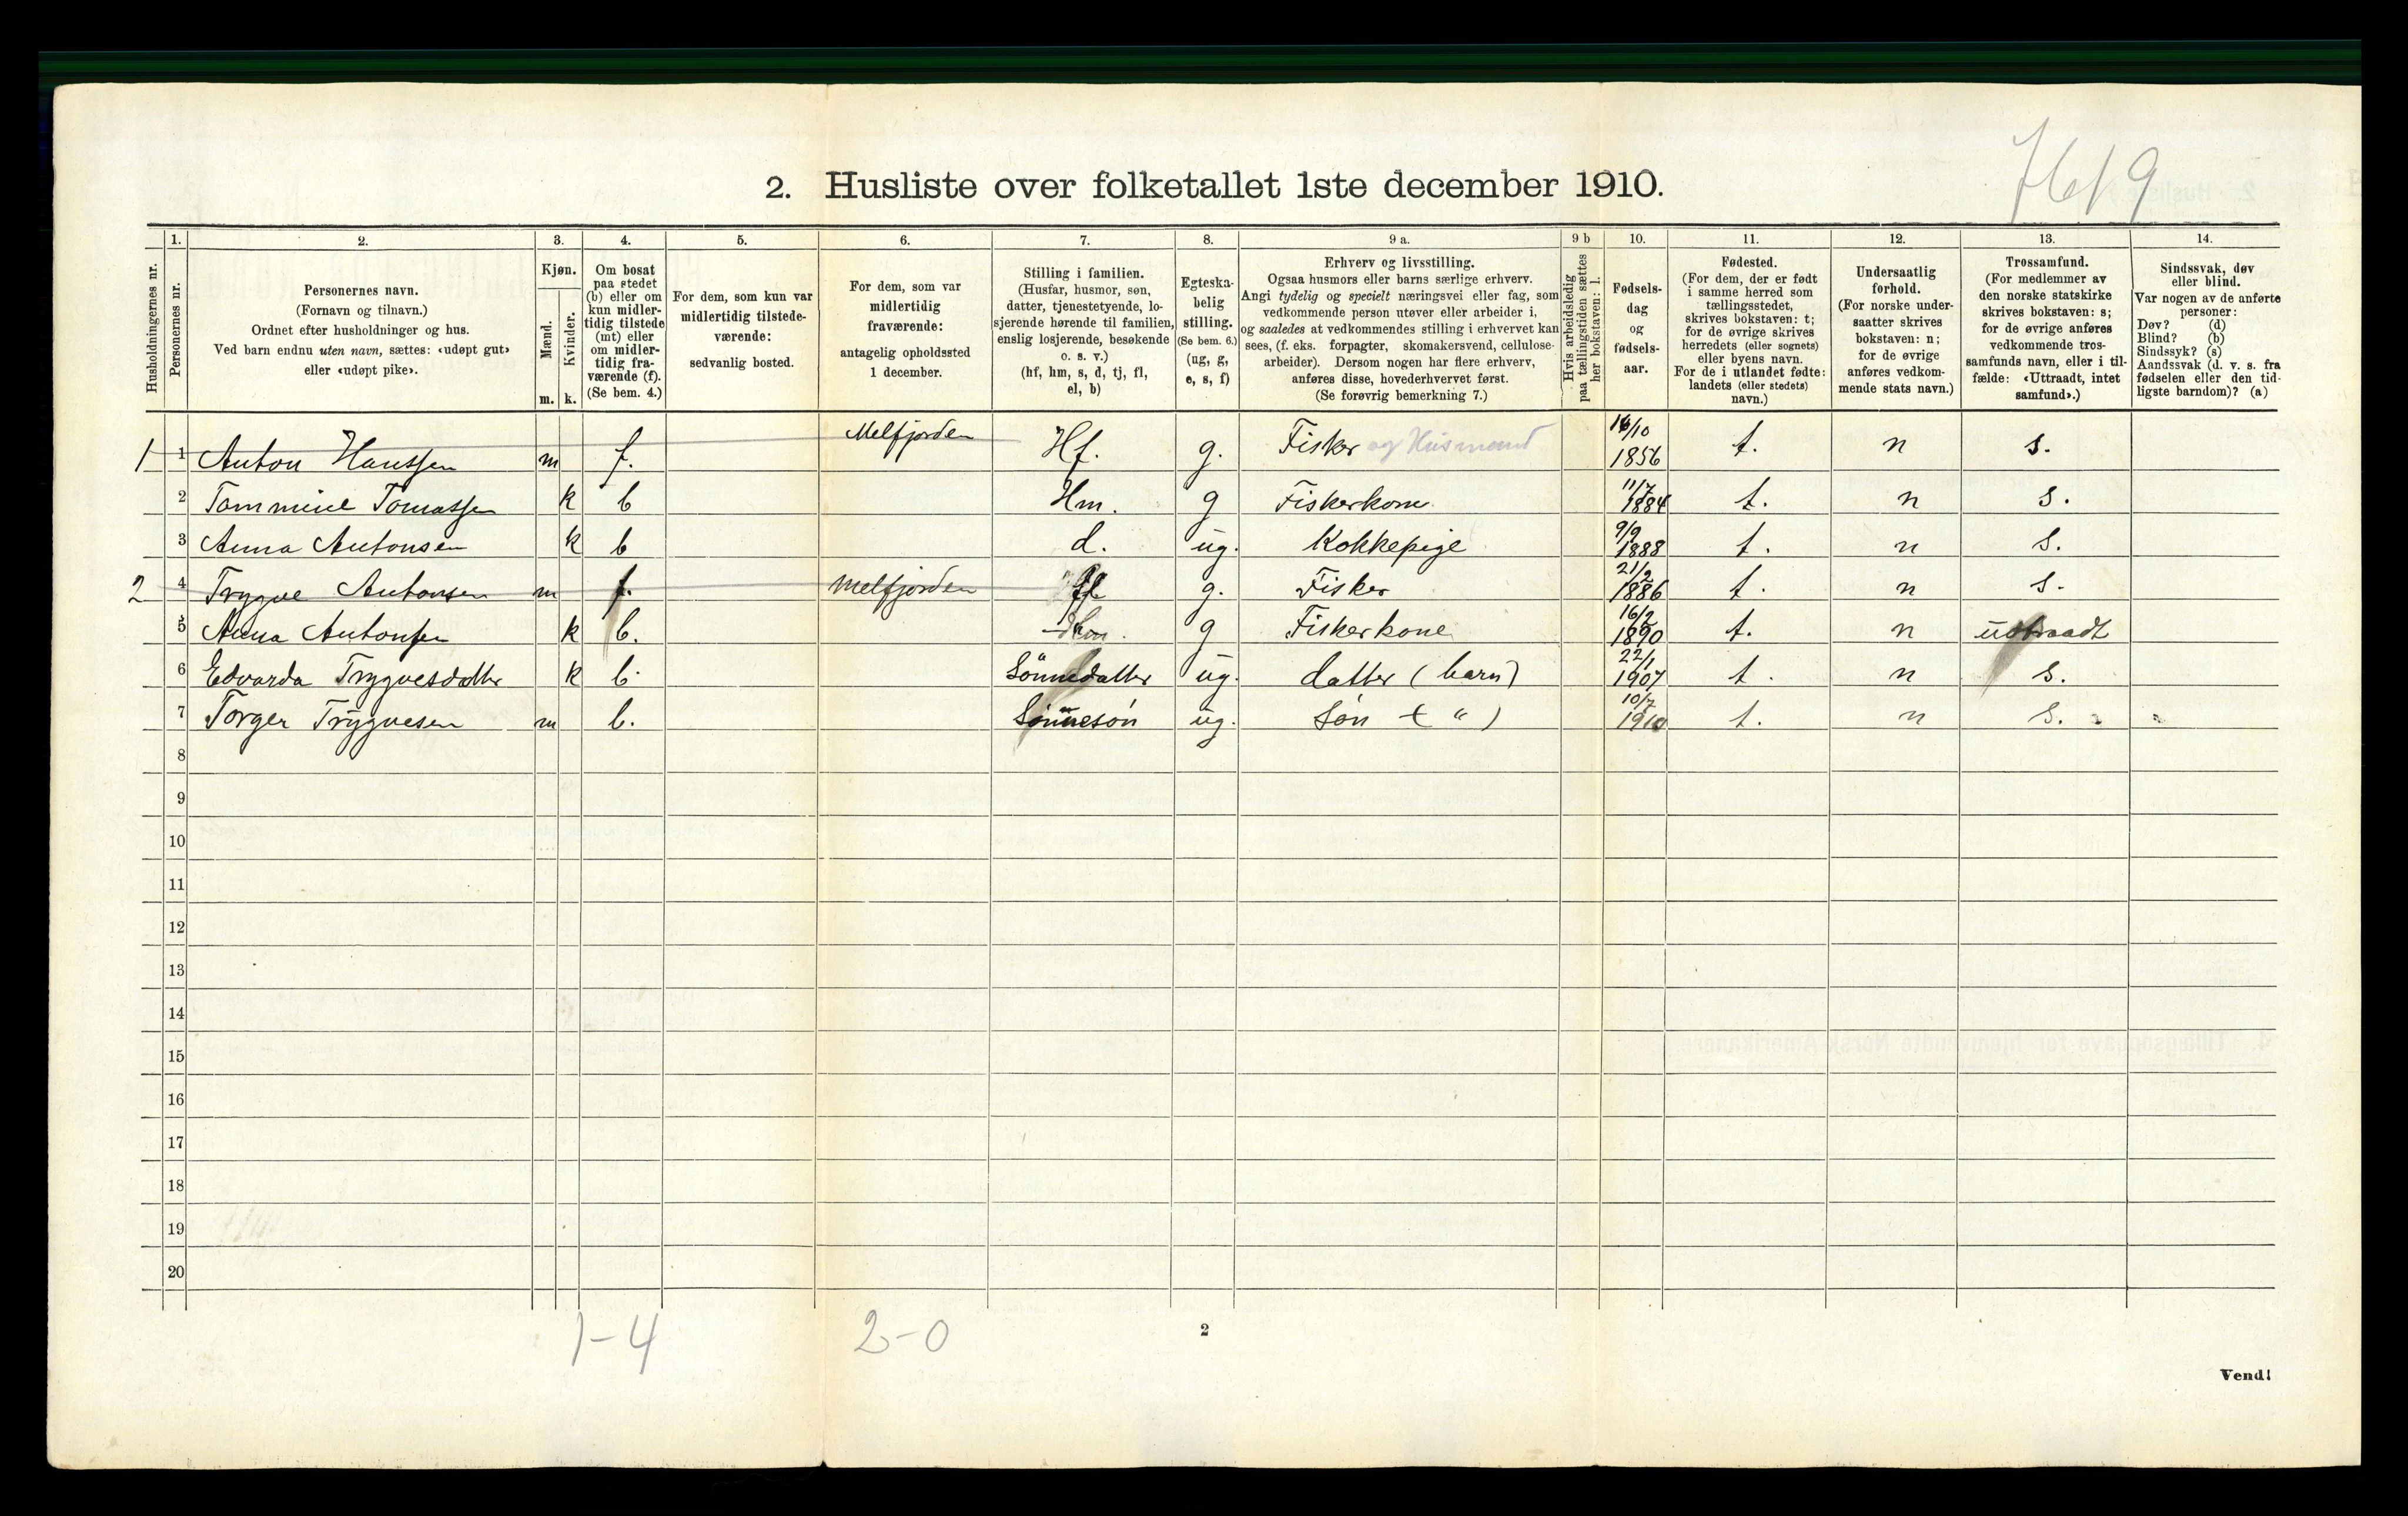 2. Husliste over folketallet 1ste december 1910.
Husholdningernes nr.
1.
Personernes nr.
2.
Personernes navn.
(Fornavn og tilnavn.)
Ordnet efter husholdninger og hus.
Ved barn endnu uten navn, sættes: «udøpt gut»
eller «udøpt pike».
3.
Kjøn.
Mænd.
Kvinder.
m. k.
4.
Om bosat
paa stedet
(b) eller om
kun midler-
tidig tilstede
(mt) eller
om midler-
tidig fra-
værende (f).
(Se bem. 4.)
5.
For dem, som kun var
midlertidig tilstede-
værende:
sedvanlig bosted.
6.
For dem, som var
midlertidig
fraværende:
antagelig opholdssted
1 december.
7.
Stilling i familien.
(Husfar, husmor, søn,
datter, tjenestetyende, lo-
sjerende hørende til familien,
enslig losjerende, besøkende
o. s. v.)
(hf, hm, s, d, tj, fl,
el, b)
8.
Egteska-
belig
stilling.
(Se bem. 6.)
(ug, g,
e, s, f)
9 a.
Erhverv og livsstilling.
Ogsaa husmors eller barns særlige erhverv.
Angi tydelig og specielt næringsvei eller fag, som
vedkommende person utøver eller arbeider i,
og saaledes at vedkommendes stilling i erhvervet kan
sees, (f. eks. forpagter, skomakersvend, cellulose-
arbeider). Dersom nogen har flere erhverv,
anføres disse, hovederhvervet først.
(Se forøvrig bemerkning 7.)
9 b
Hvis arbeidsledig
paa tællingstiden sættes
her bokstaven: l.
10.
Fødsels-
dag
og
fødsels-
aar.
11.
Fødested.
(For dem, der er født
i samme herred som
tællingsstedet,
skrives bokstaven: t;
for de øvrige skrives
herredets (eller sognets)
eller byens navn.
For de i utlandet fødte:
landets (eller stedets)
navn.)
12.
Undersaatlig
forhold.
(For norske under-
saatter skrives
bokstaven: n;
for de øvrige
anføres vedkom-
mende stats navn.)
13.
Trossamfund.
(For medlemmer av
den norske statskirke
skrives bokstaven: s;
for de øvrige anføres
vedkommende tros-
samfunds navn, eller i til-
fælde: «Uttraadt, intet
samfund».)
14.
Sindssvak, døv
eller blind.
Var nogen av de anførte
personer:
Døv? (d)
Blind? (b)
Sindssyk? (s)
Aandssvak (d. v. s. fra
fødselen eller den tid-
ligste barndom)? (a)
1 1 Anton Hanssen m f. Melfjorden Hf. g. Fisker og Husmand /10 1856 t. n s.
2 Tommine Tomassen k b Hm. g Fiskerkone 11/7 1884 t. n s.
3 Anna Antonsen k b d. ug. Kokkepige 9/9 1888 t. n s.
2 4 Trygve Antonsen m f. Melfjorden g. Fisker 21/2 1886 t. n s.
5 Anna Antonsen k b. g Fiskerkone 16/2 1890 t. n udtraadt
6 Edvarda Trygvesdatter k b. Sönnedatter ug. datter (barn) 22/1 1907 t. n s.
7 Torger Trygvesen m b. Sönnesön ug. Sön ( " ) 10/7 1910 t. n s.
8
9
10
11
12
13
14
15
16
17
18
19
20
1-4 2-0
2
Vend!